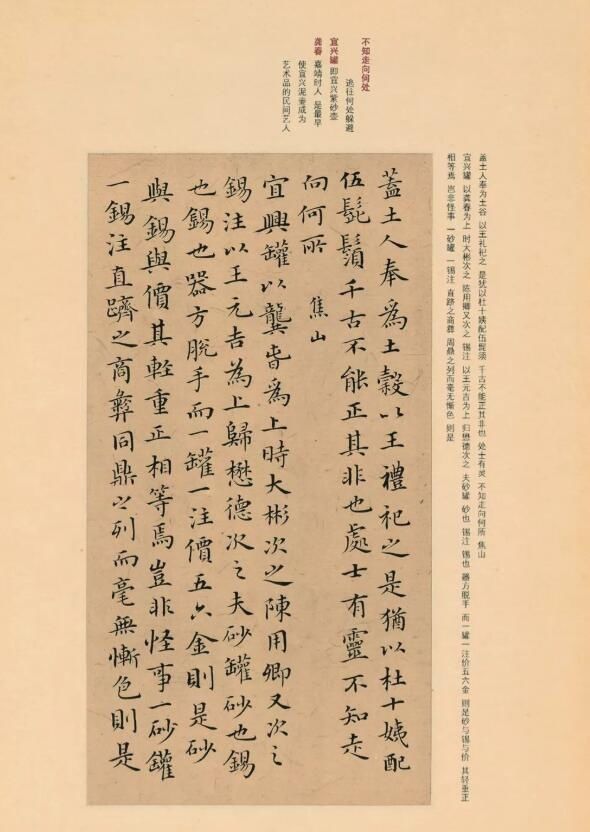 盖土人奉为土谷 以王礼祀之 是犹以杜十姨配伍髭须 千古不能正其非也 处士有灵 不知走向何所 焦山
宜兴罐 以龚春为上 时大彬次之 陈用卿又次之 锡注 以王元吉为上 归懋德次之 夫砂罐 砂也 锡注 锡也 器方脱手 而一罐一注价五六金 则是砂与锡与价 其轻重正
相等焉 岂非怪事 一砂罐 一锡注 直跻之商彝 周鼎之列而毫无惭色 则是
不知走向何处
逃往何处躲避
宜兴罐 即宜兴紫砂壶
龚春 嘉靖时人 是最早
使宜兴泥壶成为
艺术品的民间艺人
蓋土人奉為土穀以王禮祀之是猶以杜十姨配
伍髭鬚千古不能正其非也處士有靈不知走
向何所 焦山
宜興罐以龔春為上時大彬次之陳用卿又次之
錫注以王元吉為上歸懋德次之夫砂罐砂也錫
也錫也器方脫手而一罐一注價五六金則是砂
與錫與價其輕重正相等焉豈非怪事一砂罐
一錫注直躋之商彝周鼎之列而毫無慚色則是